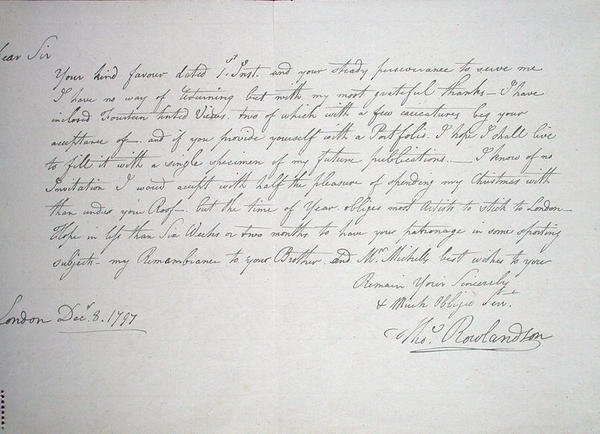 Dear Sir
Your kind favour dated 1st Inst. and your steady perseverance to serve me
I have no way of returning but with my most grateful thanks — I have
inclosed Fourteen tinted Views. two of which with a few caricatures beg your
acceptance of — and if you provide yourself with a Portfolio. I hope I shall live
to fill it with a single specimen of my future publications. — I know of no
Invitation I would accept with half the pleasure of spending my Christmas with
than under your Roof — but the time of Year obliges most Artists to stick to London —
Hope in less than Six Weeks or two months to have your patronage in some sporting
subject — my Remembrance to your Brother and Mr. Michells best wishes to your
Remain Your Sincerely
& Much Obliged Servt.
London Decr. 8. 1797
Thos. Rowlandson